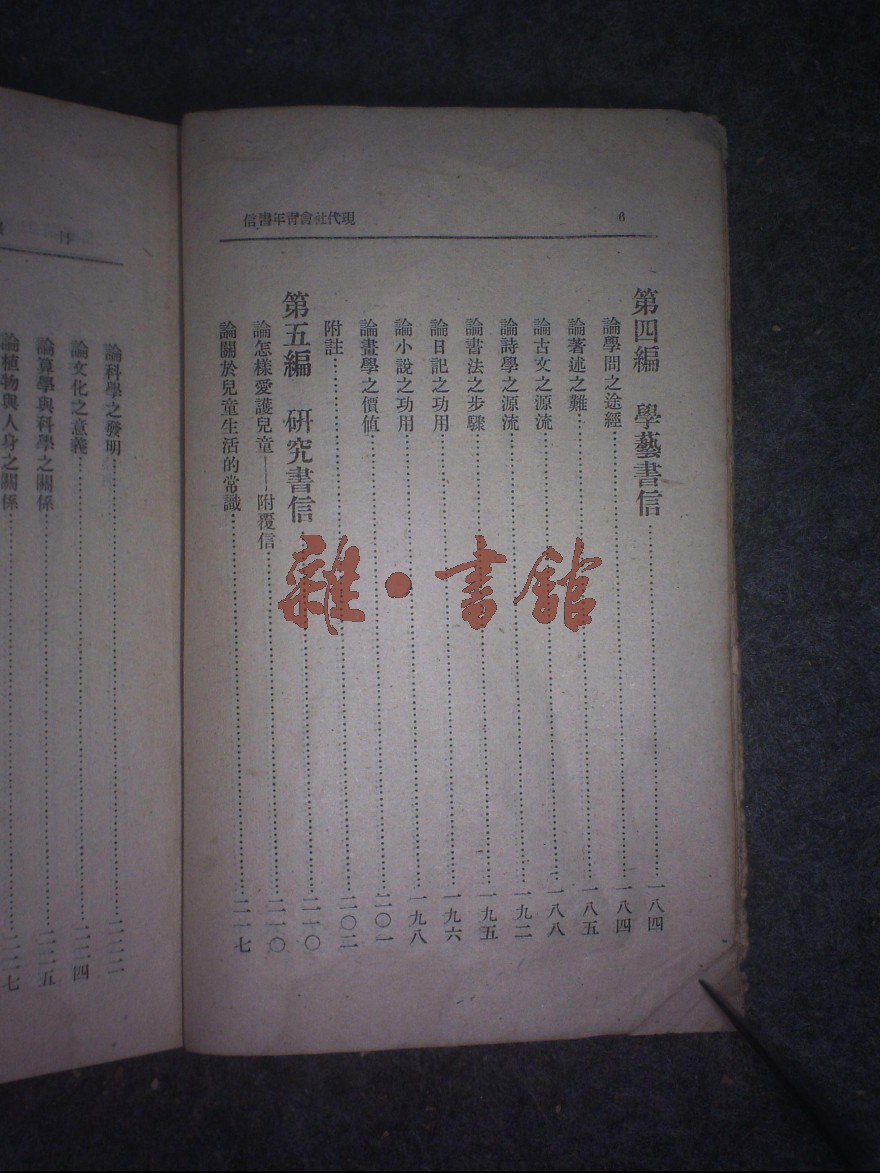 6
現代社會青年書信
第四編 學藝書信…………一八四
論學問之途經…………一八四
論著述之難…………一八五
論古文之源流…………一八八
論詩學之源流…………一九二
論書法之步驟…………一九五
論日記之功用…………一九六
論小說之功用…………一九八
論畫學之價值…………二〇一
附註…………二〇二
第五編 研究書信…………二一〇
論怎樣愛護兒童——附覆信…………二一〇
論關於兒童生活的常識…………二一七
論科學之發明…………二二二
論文化之意義…………二二四
論算學與科學之關係…………二二五
論植物與人身之關係…………二二七
雜·書館